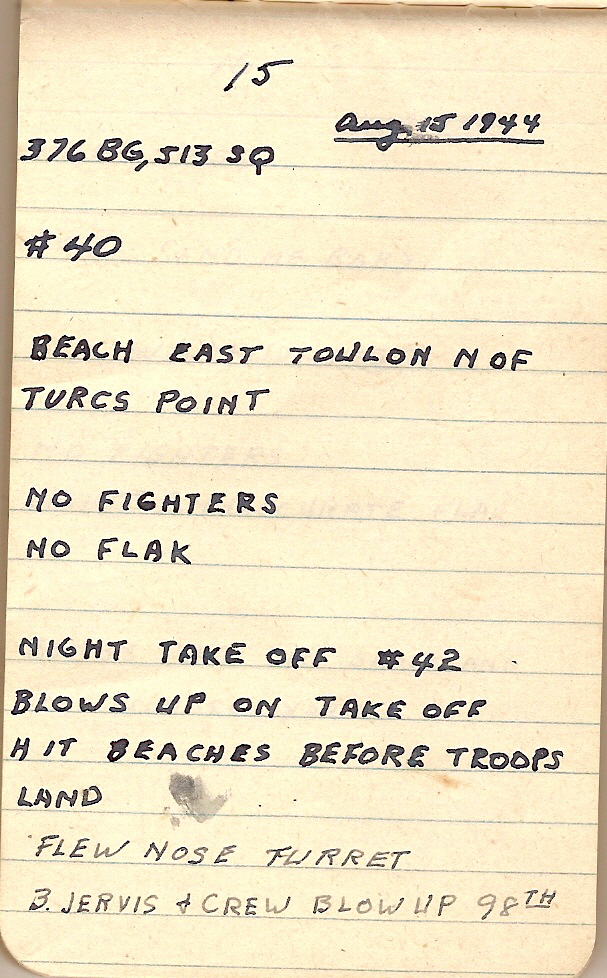 15
Aug. 15 1944
376 BG, 513 SQ
#40
BEACH EAST TOULON N OF
TURCS POINT
NO FIGHTERS
NO FLAK
NIGHT TAKE OFF #42
BLOWS UP ON TAKE OFF
HIT BEACHES BEFORE TROOPS
LAND
FLEW NOSE TURRET
3. JERVIS & CREW BLOW UP 98TH